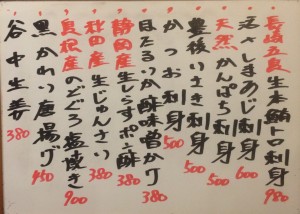 長崎五島生本鮪トロ刺身 980
活〆しまあじ刺身 600
天然かんぱち刺身 500
豊後いさき刺身 500
かつお刺身 500
ほたるいか酢味噌かけ 380
静岡産生しらすポン酢 380
秋田産生じゅんさい 380
島根産のどぐろ塩焼き 900
黒かれい唐揚げ 450
谷中生姜 380